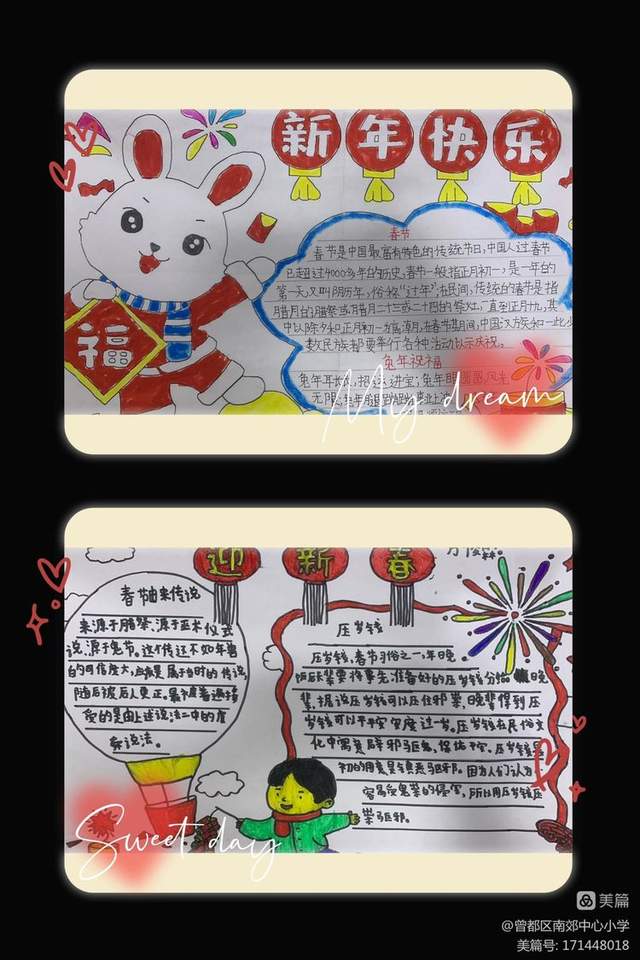 新年快乐
春节
春节是中国最富有特色的传统节日,中国人过春节
已超过4000多年的历史,春节一般指正月初一,是一年的
第一天,又叫阴历年,俗称“过年”;在民间,传统的春节是指
腊月的腊祭或腊月二十三或二十四的祭灶,一直到正月十九,其
中以除夕和正月初一为高潮,在春节期间,中国汉族和一些少
数民族都要举行各种活动以示庆祝。
福
兔年祝福
兔年开大吉,招财进宝;兔年
无限
My dream
迎新春
春节由来传说
来源于腊祭、源于巫术仪式
说、源于鬼节。这个传达不如年兽
的可信度大,
属于当时的传说,
随后被后人更正。最被普遍接
受的是由上述说法二中的虞
舜说法。
压岁钱
压岁钱,春节习俗之一,年晚
饭后长辈要将事先准备好的压岁钱分给晚
辈,据说压岁钱可以压住邪祟,晚辈得到压
岁钱可以平平安安度过一岁。压岁钱在民俗文
化中寓意辟邪驱鬼,保佑平安。压岁钱最
初的用意是镇恶驱邪。因为人们认为
容易受鬼祟的侵害,所以用压岁钱压
祟驱邪。
Sweet day
美篇
@曾都区南郊中心小学
美篇号: 171448018